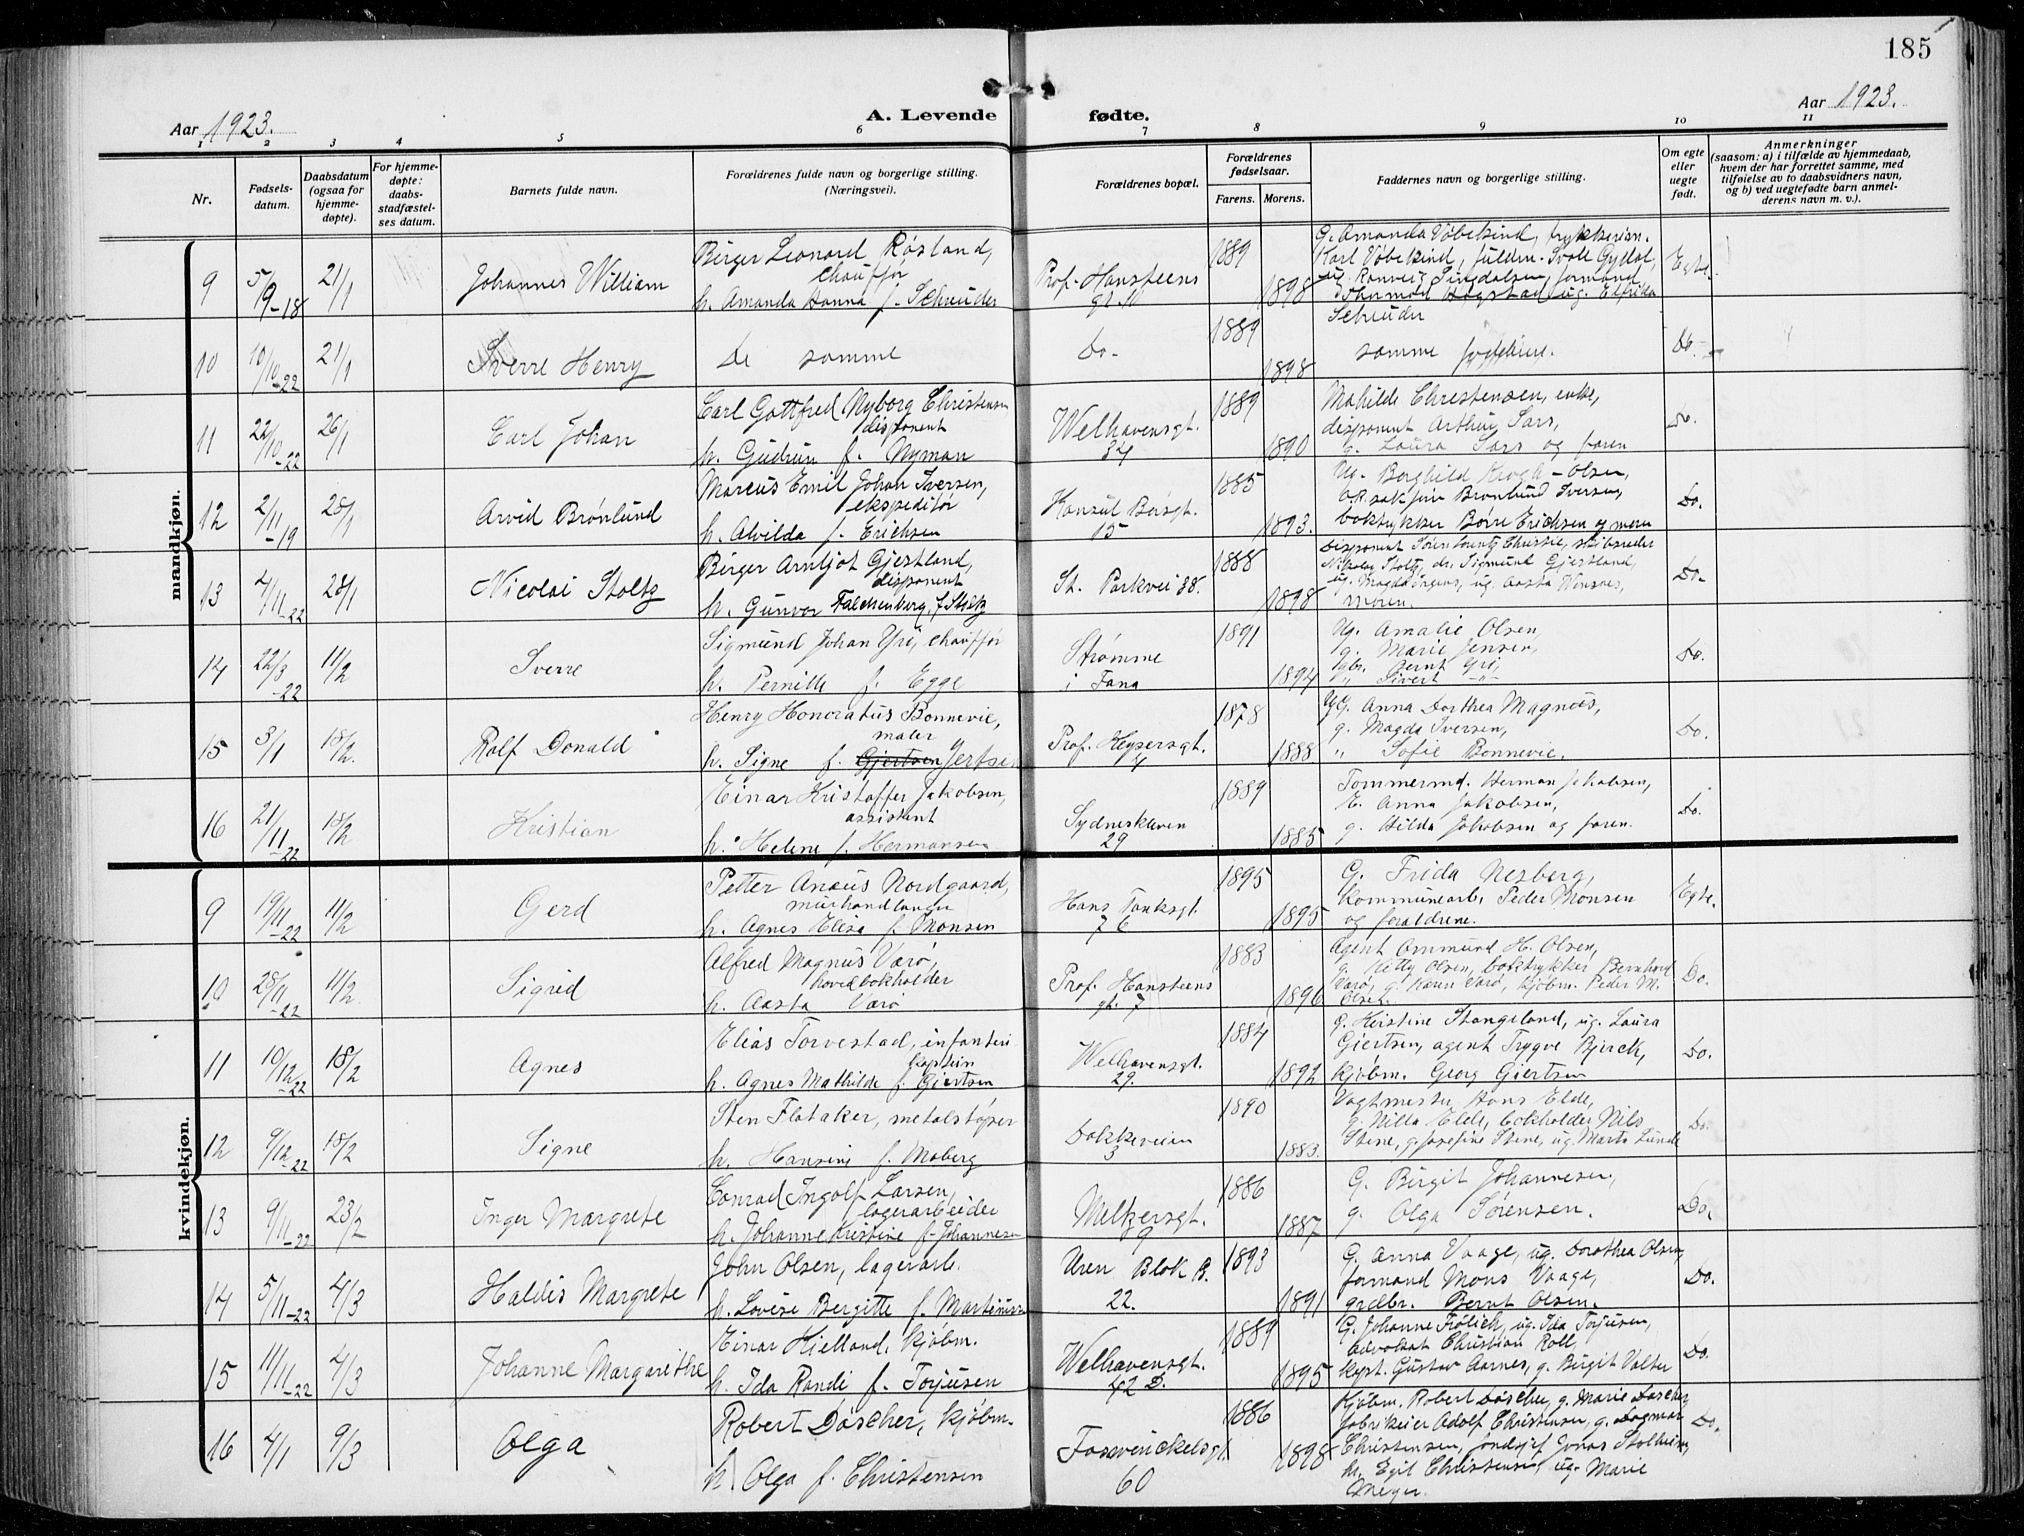 185
Aar 1923. A. Levende fødte. Aar 1923.
1 2 3 4 5 6 7 8 9 10 11
Nr.
Fødsels-
datum.
Daabsdatum
(ogsaa for
hjemme-
døpte).
For hjemme-
døpte:
daabs-
stadfæstel-
ses datum.
Barnets fulde navn.
Forældrenes fulde navn og borgerlige stilling.
(Næringsvei).
Forældrenes bopæl.
Forældrenes
fødselsaar.
Farens. Morens.
Faddernes navn og borgerlige stilling.
Om egte
eller
uegte
født.
Anmerkninger
(saasom: a) i tilfælde av hjemmedaab,
hvem der har forrettet samme, med
tilføielse av to daabsvidners navn,
og b) ved uegtefødte barn anmel-
derens navn m. v.).
mandkjøn.
9 5/9-18 21/1 Johannes William
Birger Leonard Røsland,
chauffør
h. Amanda Hanna f. Schreuder
Prof. Hansteens
gt.
1889 1898
G. Amanda Vøbekind,
Karl Vøbekind,
Schreuder
Egte.
10 10/10-22 21/1 Sverre Henry
De samme
Do-
1889 1898
samme faddere.
Do.
11 22/10-22 26/1 Carl Johan
Carl Gottfred Nyborg Christensen
disponent
h. Gudrun f. Nyman
Welhavensgt.
34
1889 1890
Mathilde Christensen, enke,
disponent Arthur Sars,
g. Laura Sars og faren
Do.
12 2/11-19 28/1 Arvid Brønlund
Marcus Emil Johan Iversen,
ekspeditør
h. Alvilda f. Erichsen
Konsul Børsgt.
15
1885 1893.
Ug. Borghild Krogh-Olsen,
Brønlund Iversen,
boktrykker Børre Erichsen og moren
Do.
13 4/11-22 28/1 Nicolai Stoltz
Birger Arnljot Gjestland,
disponent
h. Gunvor Falchenberg, f. Stoltz
St. Parkvei 38.
1888 1898
Disponent Christie, skibsreder
Nikolay Stoltz, dr. Sigmund Gjestland,
ug. Magda Irgens, ug. Aasta
moren.
Do.
14 22/8-22 11/2 Sverre
Sigmund Johan Yri, chauffør
h. Pernille f. Egge
Strømme
i Fana
1891 1894
Ug. Amalie Olsen,
g. Marie Jensen,
gbr. Bernt Yri,
" Sivert -"-
Do.
15 3/1 18/2. Rolf Donald
Henry Honoratus Bonnevie,
maler
h. Signe f. Gjertsen Jertsen
Prof. Keysersgt.
4
1878 1888
G. Anna Dorthea Magnus,
g. Magda Iversen,
" Sofie Bonnevie.
Do.
16 21/11-22 18/2 Kristian
Einar Kristoffer Jakobsen,
assistent
h. Helene f. Hermansen
Sydneskleven
29
1889 1885
Tømmermd. Herman Jakobsen,
E. Anna Jakobsen,
g. Hilda Jakobsen og faren.
Do.
kvindekjøn.
9 19/11-22 11/2 Gerd
Petter Anæus Nordgaard,
murhandlanger
h. Agnes Elisa f. Monsen
Hans Tanksgt.
76
1895 1895
G. Frida Nesberg,
Kommunearb. Peder Monsen
og forældrene.
Egte.
10 28/11-22 11/2. Sigrid
Alfred Magnus Værø,
hovedbokholder
h. Aasta Værø
Prof. Hansteens
gt. 7
1883 1896
Agent Ammund H. Olsen,
g. Kitty Olsen, boktrykker Bernhard
Værø, g. Karen Værø, kjøbm. Peder M.
Olsen.
Do.
11 10/12-22 18/2 Agnes
Elias Torvestad, infanteri
kaptein
h. Agnes Mathilde f. Gjertsen
Welhavensgt.
29.
1884 1892
g. Kirstine Stangeland, ug. Laura
Giertsen, agent Trygve Bjerck,
kjøbm. Georg Giertsen
Do.
12 9/12-22 18/2 Signe
Sten Flataker, metalstøper
h. Hansine f. Moberg
Dokkeveien
3
1890 1883.
Vagtmester Hans Elde,
g. Nilla Elde, bokholder Nils
Stene, g. Josefine Stene, ug. Marta Lunde
Do.
13 9/11-22 23/2 Inger Margrete
Conrad Ingolf Larsen,
lagerarbeider
h. Johanne Kristine f. Johannesen
Meltzersgt.
9
1886 1887
G. Birgit Johannesen,
g. Olga Sørensen.
Do.
14 5/11-22 4/3 Haldis Margrete
John Olsen, lagerarb.
h. Lovise Bergitte f. Martinussen
Uren Blok B.
22.
1893 1891
G. Anna Vaage, ug. Dorothea Olsen,
formand Mons Vaage,
grdbr. Bernt Olsen.
Do.
15 11/11-22 4/3 Johanne Margarithe
Einar Kielland, kjøbm.
h. Ida Randi f. Torjusen
Welhavensgt.
42 D.
1889 1895
G. Johanne Frølich, ug. Ida Torjusen,
advokat Christian Roll,
kapt. Gustav Aarnes, g. Birgit Valter
Do.
16 4/1 9/3 Olga
Robert Døscher, kjøbm.
h. Olga f. Christensen
Fosswinckelsgt.
60
1886 1898
Kjøbm. Robert Døscher, g. Marie Døscher,
fabrikeier Adolf Christensen, g. Dagmar
Christensen, Jonas Stolheim,
hr. Egil Christensen, ug. Marie
Meyer.
Do.